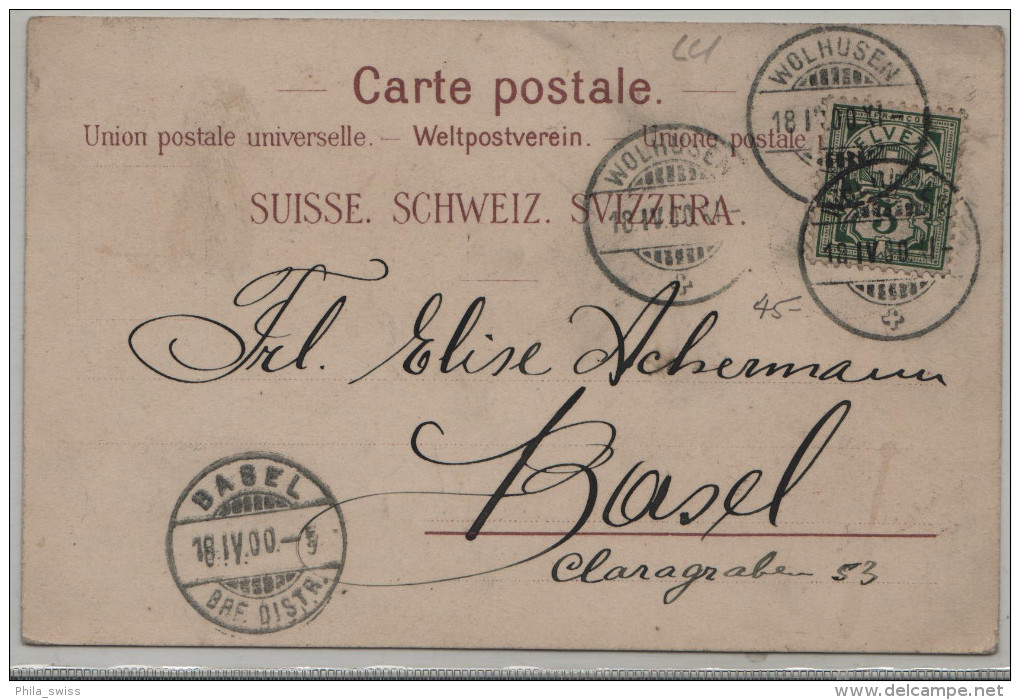 Carte postale.
Union postale universelle. — Weltpostverein. — Unione postale
SUISSE. SCHWEIZ. SVIZZERA.
WOLHUSEN
18 IV.00.XI
FRANCO
HELVETIA
5
WOLHUSEN
18.IV.00.
18.IV.00.
45-
Frl. Elise Achermann
Basel
Claragraben 53
BASEL
18.IV.00.-
BRF. DISTR.
Phila_swiss
www.delcampe.net